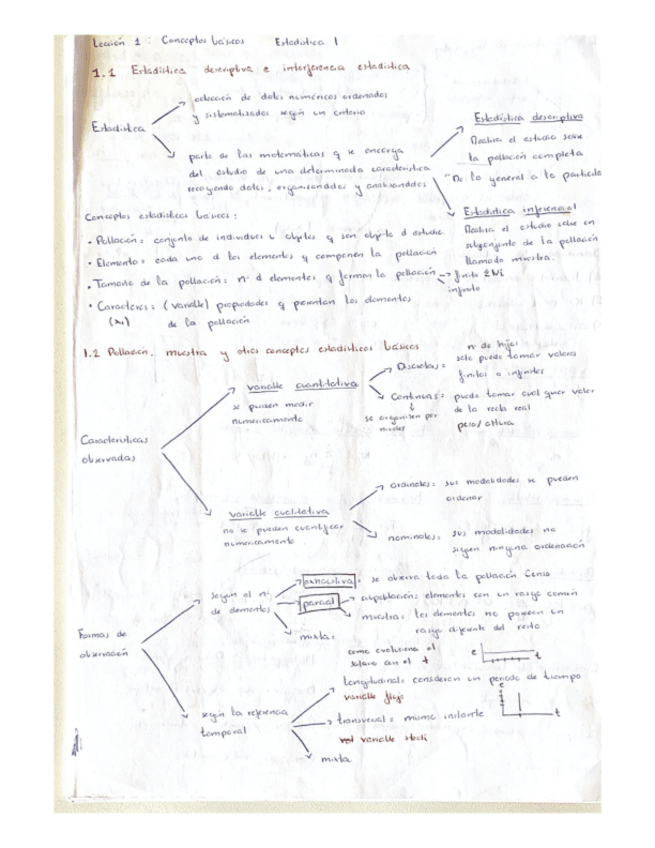 Lección 1 : Conceptos básicos Estadística 1
1.1 Estadística descriptiva e interferencia estadística
Estadística
colección de datos numéricos ordenados
y sistematizados según un criterio
parte de las matemáticas q se encarga
del estudio de una determinada característica
recogiendo datos, organizandolos y analizandolos
Estadística descriptiva
Realiza el estudio sobre
la población completa
"De lo general a lo particula
Estadística inferencial
Realiza el estudio sobre un
subconjunto de la población
llamado muestra.
Conceptos estadísticos básicos:
• Población: conjunto de individuos u objetos q son objeto d estudio.
• Elemento: cada uno d los elementos q componen la población
• Tamaño de la población: nº d elementos q forman la población → finito
infinito
• Caracteres: (variable) propiedades q presentan los elementos
(xi) de la población
1.2 Población, muestra y otros conceptos estadísticos básicos
Características
observadas
variable cuantitativa
se pueden medir
numéricamente
nº de hijos
Discretas: solo puede tomar valores
finitos o infinitos
Continuas: puede tomar cualquier valor
de la recta real
peso/altura
se organizan por
niveles
variable cualitativa
no se pueden cuantificar
numéricamente
ordinales: sus modalidades se pueden
ordenar
nominales: sus modalidades no
siguen ninguna ordenación
Formas de
observación
según el nº
de elementos
exhaustiva: se observa toda la población Censo
parcial
subpoblación: elementos con un rasgo común
muestra: los elementos no poseen un
rasgo diferente del resto
mixta:
como evoluciona el
salario en el t
e
t
según la referencia
temporal
longitudinal: consideran un periodo de tiempo
variable flujo
transversal: mismo instante
variable stock
t
mixta